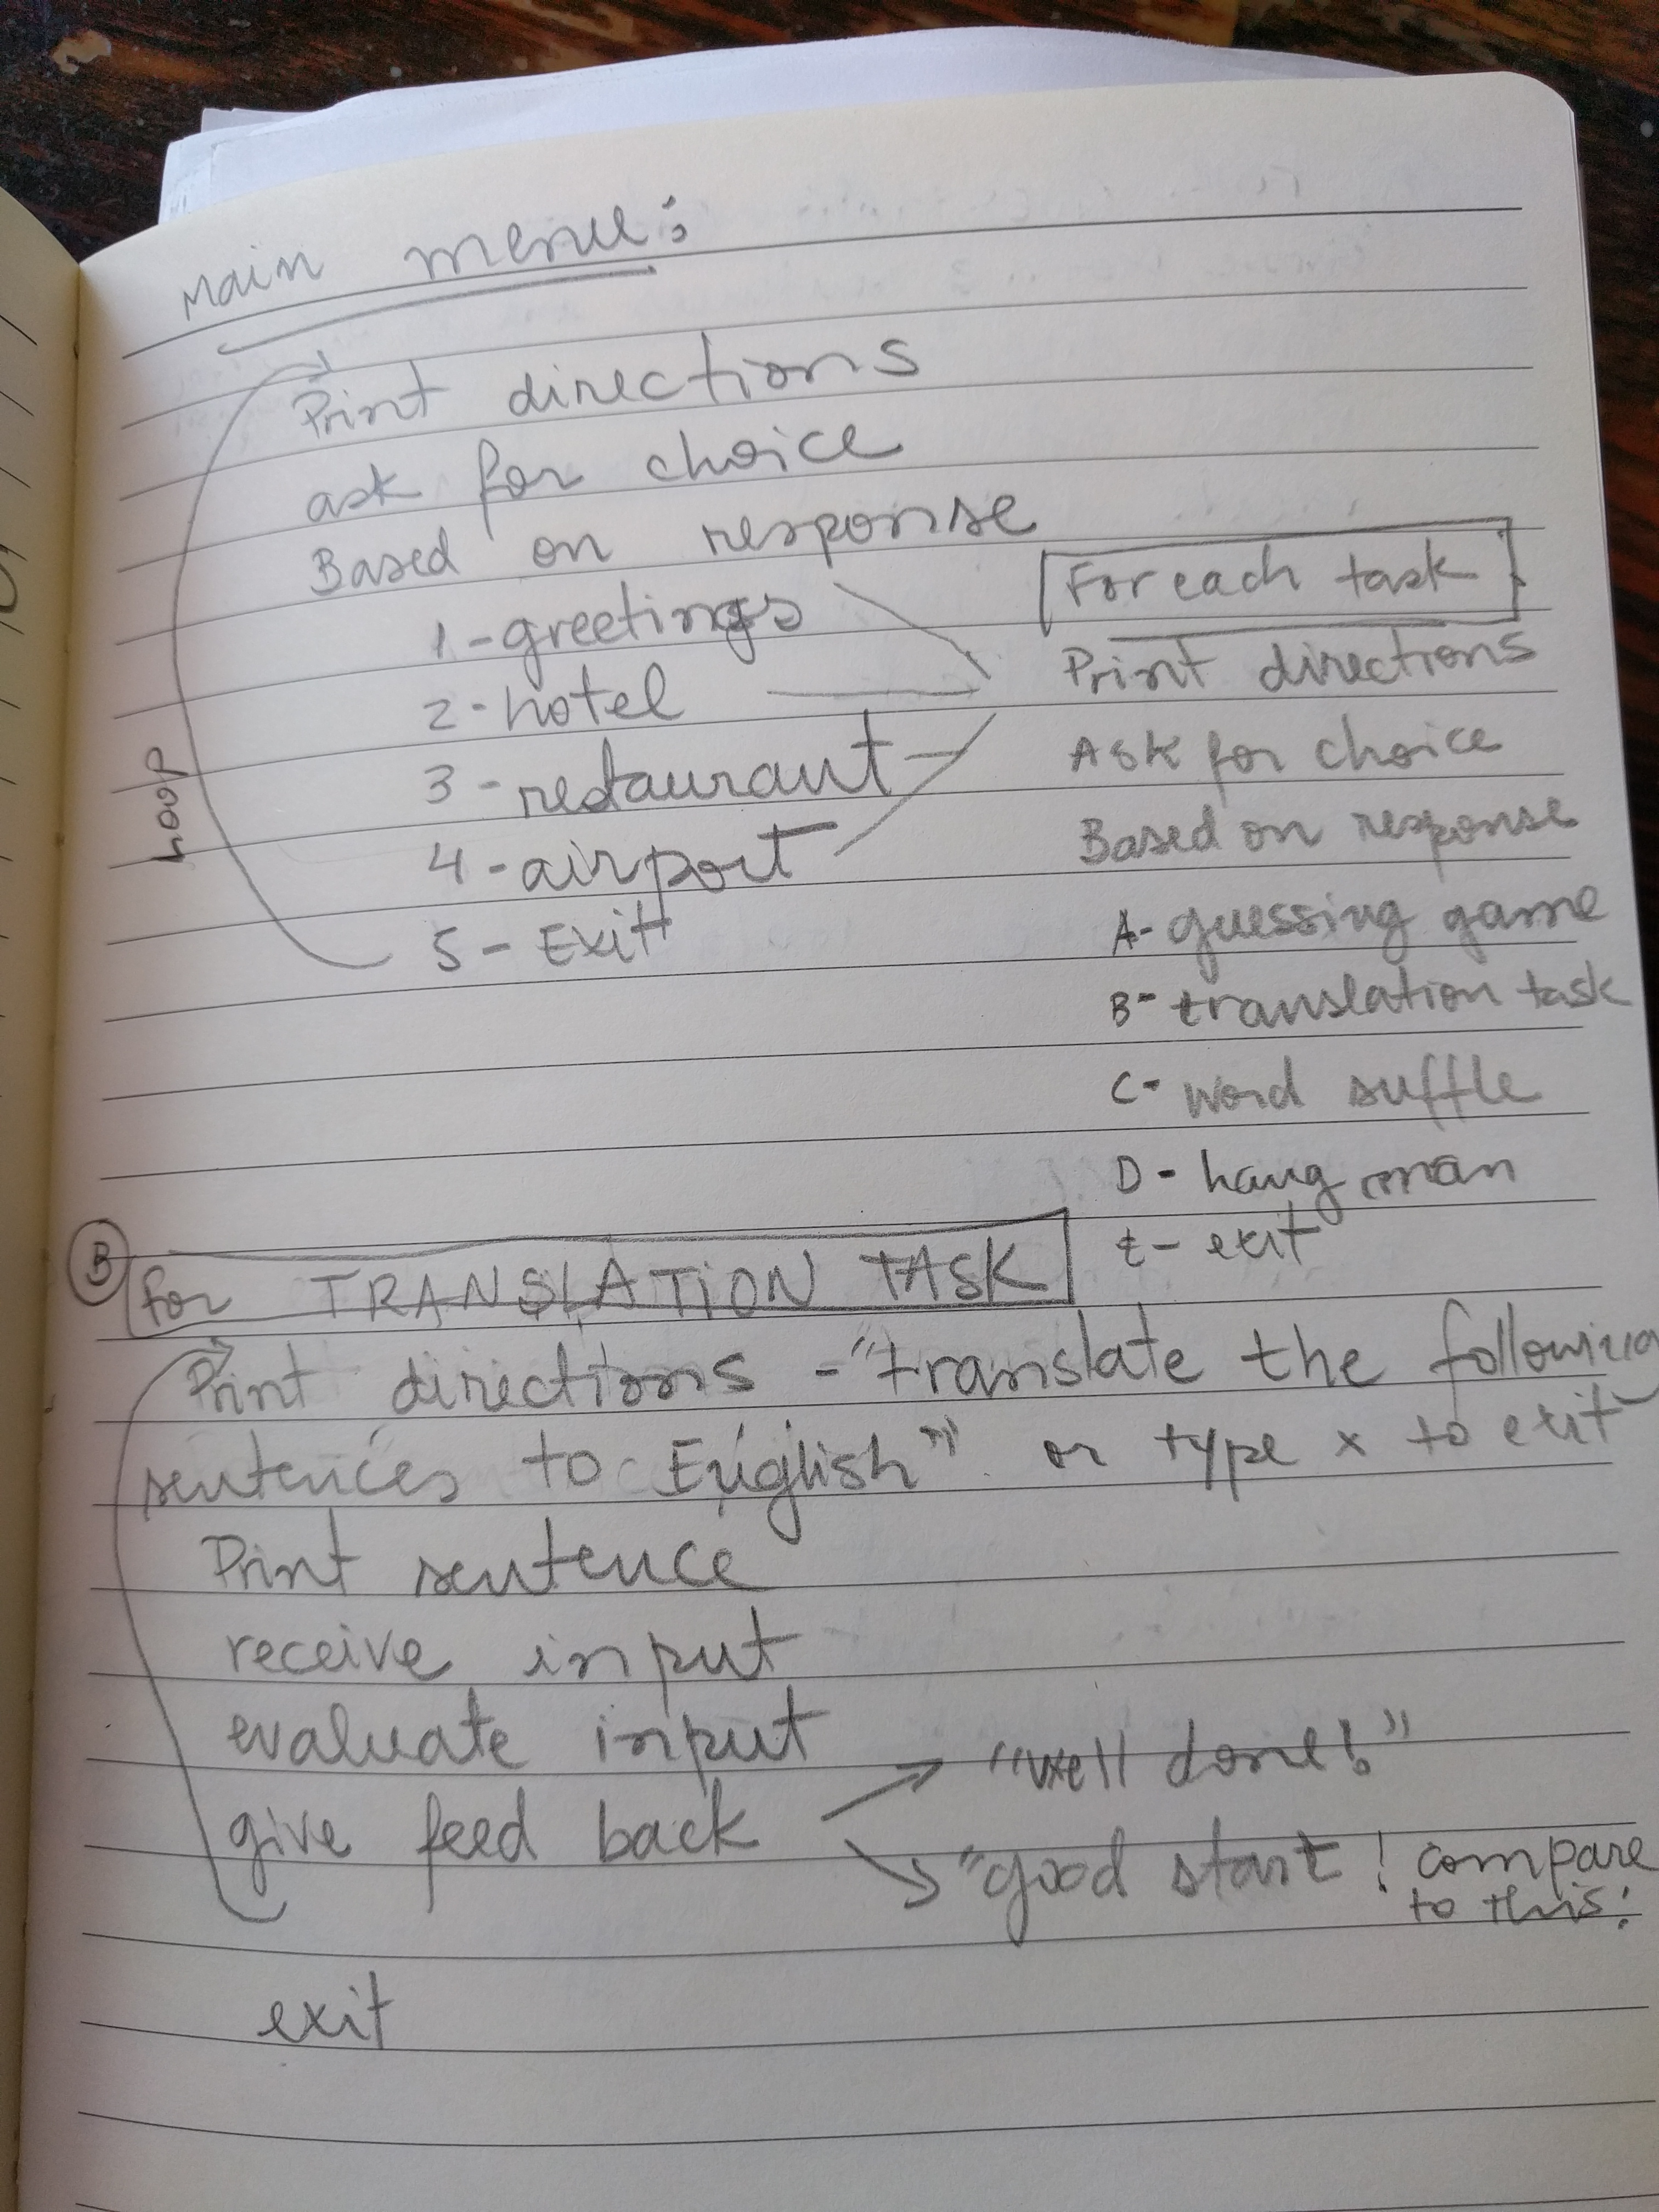 Main menu:
Print directions
ask for choice
Based on response
1 - greetings
2 - hotel
3 - restaurant
4 - airport
5 - Exit
Loop
For each task
Print directions
Ask for choice
Based on response
A - guessing game
B - translation task
C - Word suffle
D - hang man
E - exit
B
for TRANSLATION TASK
Print directions - "translate the following
sentences to English" or type x to exit
Print sentence
receive input
evaluate input
give feed back
"well done!"
"good start! compare
to this:
exit